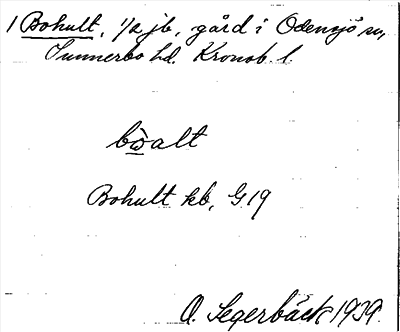 1 Bohult, 1/2 jb, gård i Odensjö sn,
Sunnerbo hd. Kronob. l.
bωalt
Bohult kb, G19
O. Segerbäck 1939.